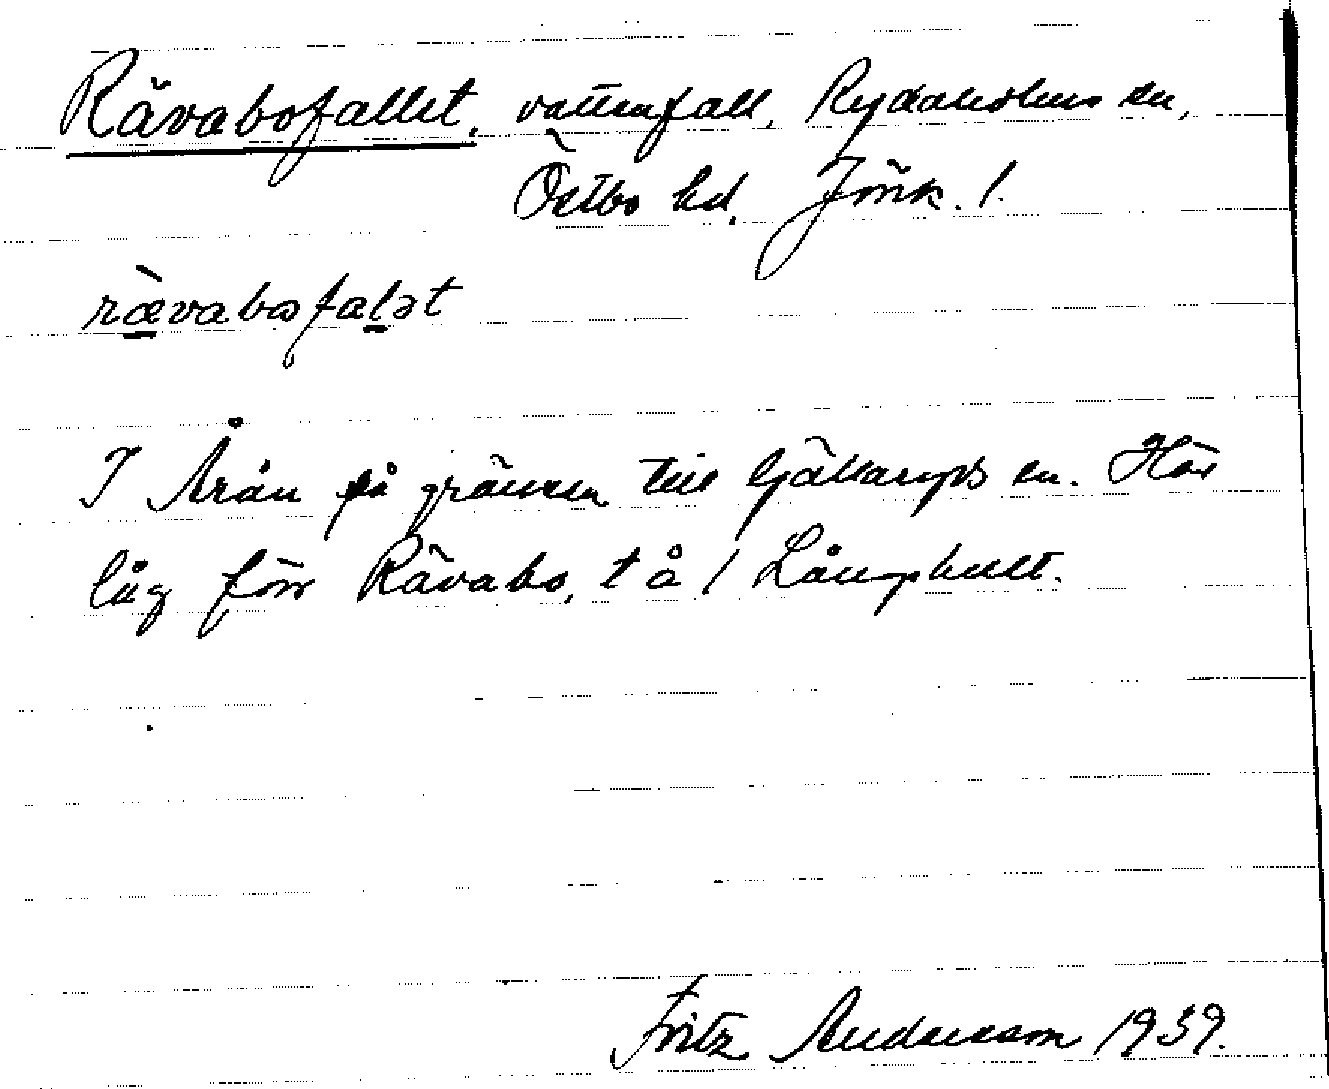 Rävabofallet, vattenfall, Rydaholms sn,
Östbo hd, Jönk. l.
rævabofalət
I Årån på gränsen till Gällaryds sn. Här
låg förr Rävabo, t å / Långhult.
Fritz Andersson 1939.